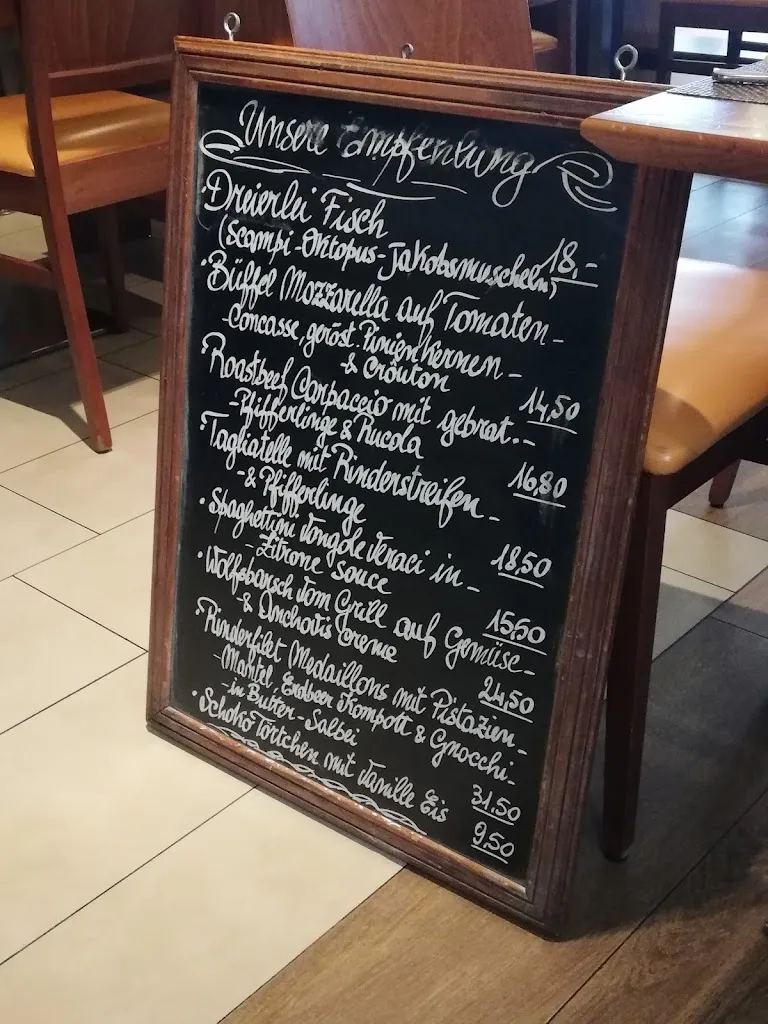 Unsere Empfehlung
·Dreierlei Fisch
(Scampi-Oktopus-Jakobsmuscheln) 18,-
·Büffel Mozzarella auf Tomaten-
-Concasse, geröst. Pinienkernen-
& Croûton 14,50
·Roastbeef Carpaccio mit gebrat.-
-Pfifferlinge & Rucola 16,80
·Tagliatelle mit Rinderstreifen-
-& Pfifferlinge 18,50
·Spaghettini Vongole Veraci in-
-Zitrone Souce 15,50
·Wolfsbarsch vom Grill auf Gemüse-
& Anchovis Creme 24,50
·Rinderfilet Medaillons mit Pistazien-
-Mantel, Erdbeer Kompott & Gnocchi-
-in Butter-Salbei 31,50
·Schoko Törtchen mit Vanille Eis 9,50